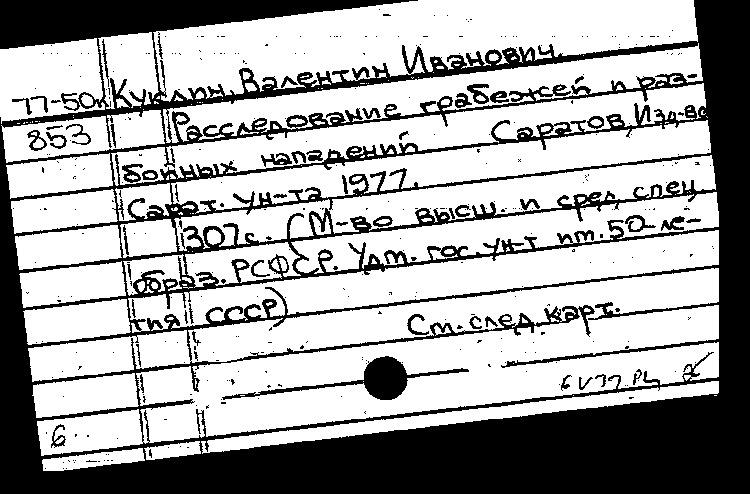 77-50к Куклин, Валентин Иванович.
853 Расследование грабежей и раз-
бойных нападений Саратов, Изд-во
Сарат. ун-та, 1977.
307с. (М-во высш. и сред. спец.
образ. РСФСР. Удм. гос. ун-т им. 50-ле-
тия СССР).
См. след. карт.
6 V 77
6